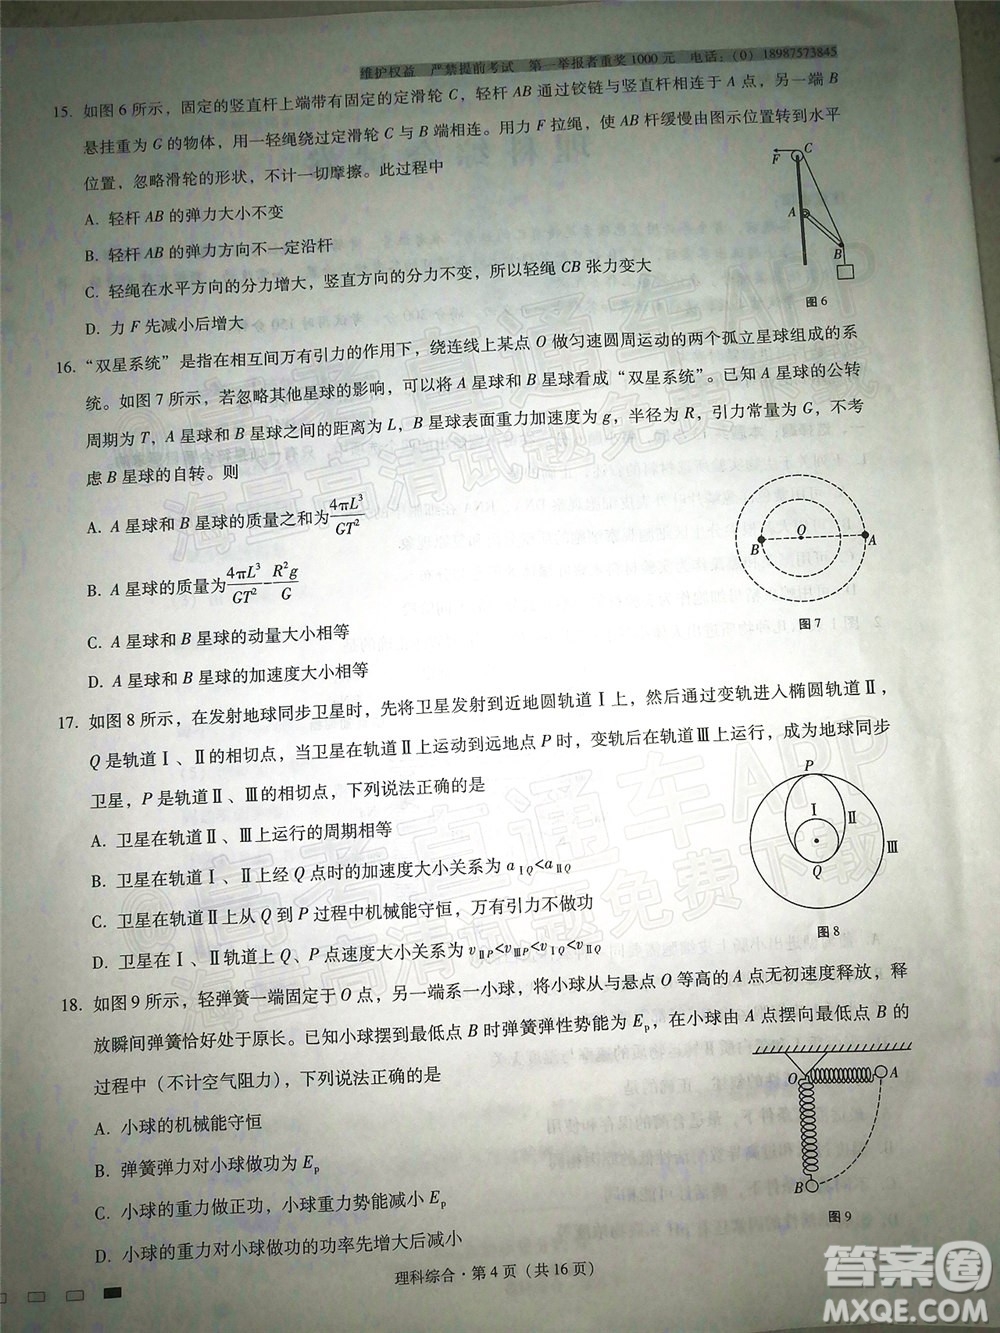 维护权益 严禁提前考试 第一举报者重奖1000元 电话：(0) 18987573845
15. 如图6所示，固定的竖直杆上端带有固定的定滑轮C，轻杆AB通过铰链与竖直杆相连于A点，另一端B
悬挂重为G的物体，用一轻绳绕过定滑轮C与B端相连。用力F拉绳，使AB杆缓慢由图示位置转到水平
位置，忽略滑轮的形状，不计一切摩擦。此过程中
A. 轻杆AB的弹力大小不变
B. 轻杆AB的弹力方向不一定沿杆
C. 轻绳在水平方向的分力增大，竖直方向的分力不变，所以轻绳CB张力变大
D. 力F先减小后增大
F
C
A
B
图6
16. “双星系统”是指在相互间万有引力的作用下，绕连线上某点O做匀速圆周运动的两个孤立星球组成的系
统。如图7所示，若忽略其他星球的影响，可以将A星球和B星球看成“双星系统”。已知A星球的公转
周期为T，A星球和B星球之间的距离为L，B星球表面重力加速度为g，半径为R，引力常量为G，不考
虑B星球的自转。则
A. A星球和B星球的质量之和为4πL³/GT²
B. A星球的质量为4πL³/GT²-R²g/G
C. A星球和B星球的动量大小相等
D. A星球和B星球的加速度大小相等
B
O
A
图7
17. 如图8所示，在发射地球同步卫星时，先将卫星发射到近地圆轨道Ⅰ上，然后通过变轨进入椭圆轨道Ⅱ，
Q是轨道Ⅰ、Ⅱ的相切点，当卫星在轨道Ⅱ上运动到远地点P时，变轨后在轨道Ⅲ上运行，成为地球同步
卫星，P是轨道Ⅱ、Ⅲ的相切点，下列说法正确的是
A. 卫星在轨道Ⅱ、Ⅲ上运行的周期相等
B. 卫星在轨道Ⅰ、Ⅱ上经Q点时的加速度大小关系为aⅠQ<aⅡQ
C. 卫星在轨道Ⅱ上从Q到P过程中机械能守恒，万有引力不做功
D. 卫星在Ⅰ、Ⅱ轨道上Q、P点速度大小关系为vⅡP<vⅠQ<vⅡQ
P
Ⅰ
Ⅱ
Ⅲ
Q
图8
18. 如图9所示，轻弹簧一端固定于O点，另一端系一小球，将小球从与悬点O等高的A点无初速度释放，释
放瞬间弹簧恰好处于原长。已知小球摆到最低点B时弹簧弹性势能为Ep，在小球由A点摆向最低点B的
过程中（不计空气阻力），下列说法正确的是
A. 小球的机械能守恒
B. 弹簧弹力对小球做功为Ep
C. 小球的重力做正功，小球重力势能减小Ep
D. 小球的重力对小球做功的功率先增大后减小
O
A
B
图9
理科综合·第4页（共16页）
@高考直通车APP
海量高清试题免费下载
答案圈
MXQE.COM